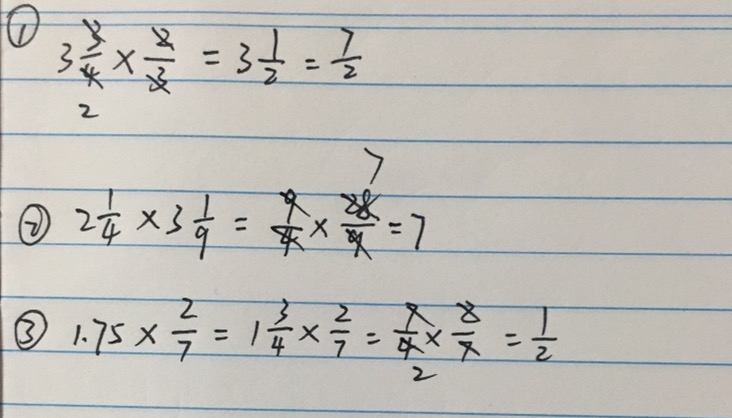 ① 3 3/4 × 2/3 = 3 1/2 = 7/2
2
7
② 2 1/4 × 3 1/9 = 9/4 × 28/9 = 7
③ 1.75 × 2/7 = 1 3/4 × 2/7 = 7/4 × 2/7 = 1/2
2